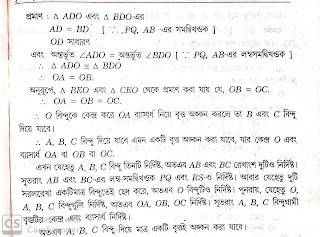 প্রমাণ : △ ADO এবং △ BDO-এর
AD = BD [ ∵ PQ, AB -এর সমদ্বিখণ্ডক ]
OD সাধারণ
এবং অন্তর্ভূত ∠ADO = অন্তর্ভূত ∠BDO [ ∵ PQ, AB-এর লম্বসমদ্বিখণ্ডক ]
∴ △ ADO ≅ △ BDO
∴ OA = OB.
অনুরূপে, △ BEO এবং △ CEO থেকে প্রমাণ করা যায় যে, OB = OC.
∴ OA = OB = OC.
∴ O বিন্দুকে কেন্দ্র করে OA ব্যাসার্ধ নিয়ে বৃত্ত অঙ্কন করলে তা B এবং C বিন্দু
দিয়ে যাবে।
∴ A, B, C বিন্দু দিয়ে যাবে এমন একটি বৃত্ত অঙ্কন করা যাবে, যার কেন্দ্র O এবং
ব্যাসার্ধ OA বা OB বা OC.
এখন যেহেতু A, B, C বিন্দু তিনটি নির্দিষ্ট, অতএব AB এবং BC রেখাংশ দুটিও নির্দিষ্ট।
সুতরাং AB এবং BC-এর লম্ব-সমদ্বিখণ্ডক PQ এবং RS-ও নির্দিষ্ট। আবার যেহেতু দুটি
সরলরেখা একটিমাত্র বিন্দুতেই ছেদ করে, অতএব O বিন্দুটিও নির্দিষ্ট। পুনরায়, যেহেতু O,
A, B, C বিন্দুগুলি নির্দিষ্ট, অতএব OA, OB, OC নির্দিষ্ট। সুতরাং A, B, C বিন্দুগামী
বৃত্তটির কেন্দ্র এবং ব্যাসার্ধ নির্দিষ্ট।
অতএব A, B, C বিন্দু দিয়ে মাত্র একটি বৃত্তই অঙ্কন করা যাবে।
CS